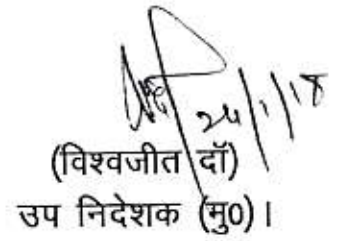 24/1/18
(विश्वजीत दॉ)
उप निदेशक (मु0)।